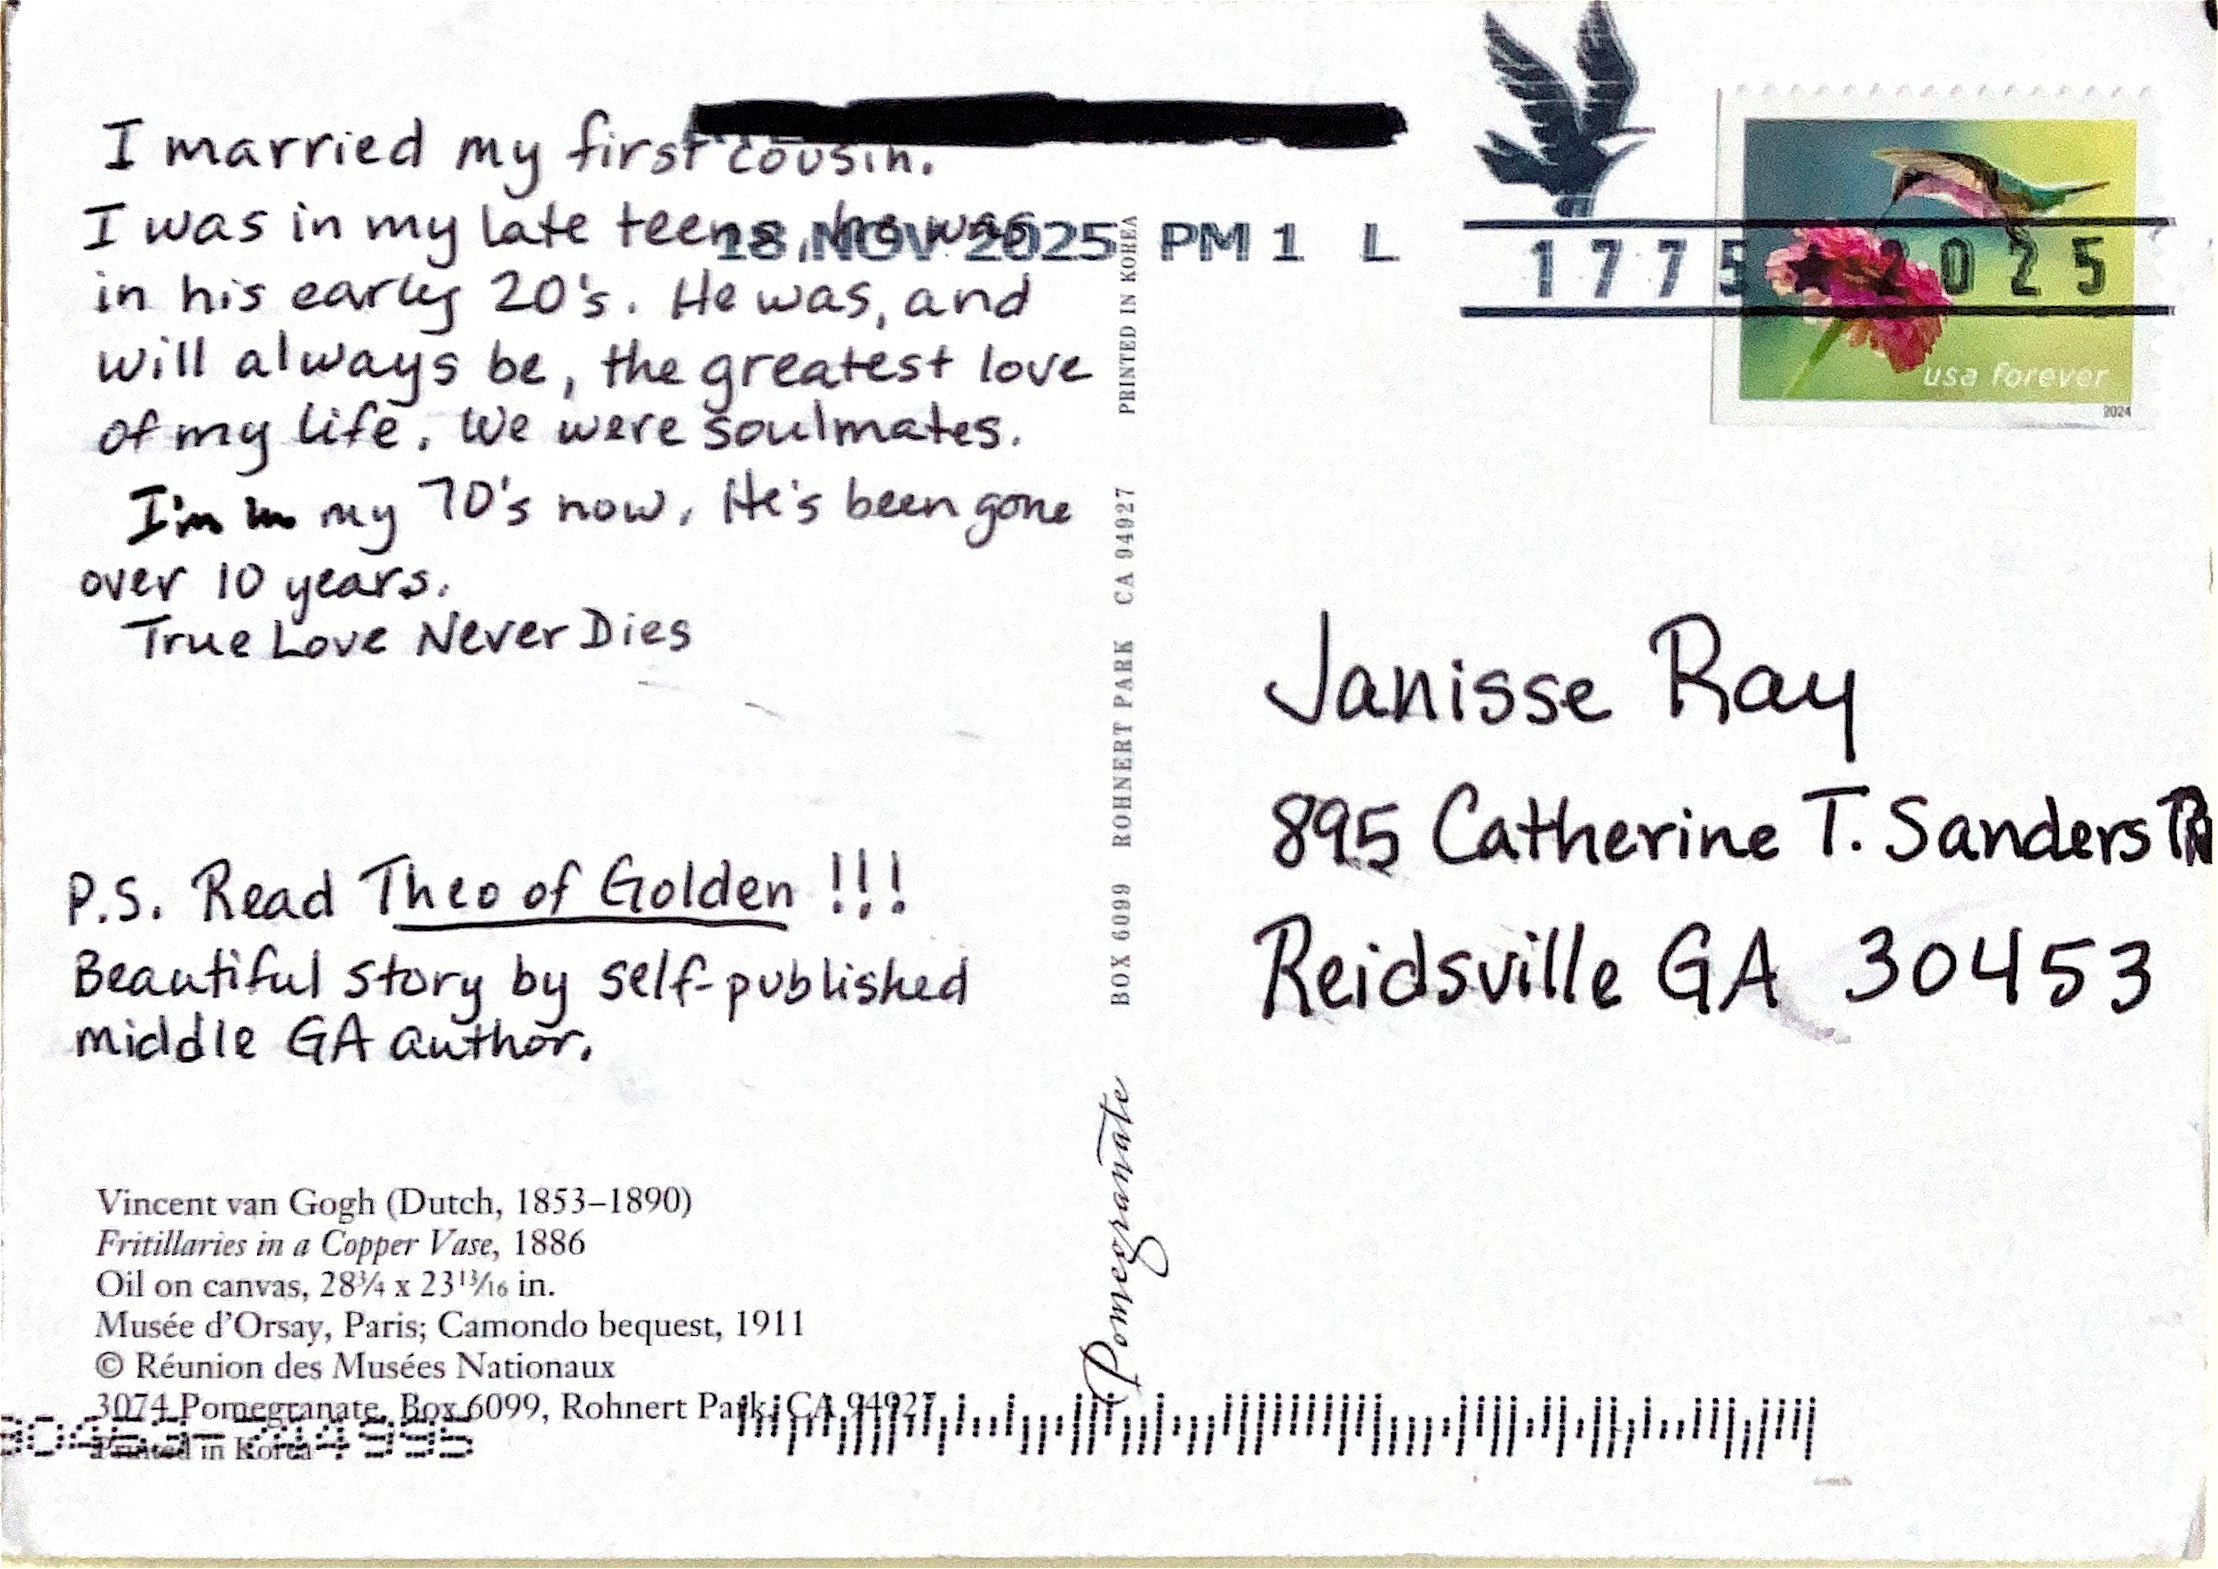 I married my first cousin.
I was in my late teens, he was
in his early 20's. He was, and
will always be, the greatest love
of my life. We were soulmates.
I'm in my 70's now. He's been gone
over 10 years.
True Love Never Dies
P.S. Read Theo of Golden !!!
Beautiful story by self-published
middle GA author.
Vincent van Gogh (Dutch, 1853–1890)
Fritillaries in a Copper Vase, 1886
Oil on canvas, 28¾ x 23¹³⁄₁₆ in.
Musée d'Orsay, Paris; Camondo bequest, 1911
© Réunion des Musées Nationaux
3074 Pomegranate, Box 6099, Rohnert Park, CA 94927
Printed in Korea
Pomegranate
BOX 6099 ROHNERT PARK CA 94927 PRINTED IN KOREA
18 NOV 2025 PM 1 L
1775 2025
usa forever
2024
Janisse Ray
895 Catherine T. Sanders
Reidsville GA 30453